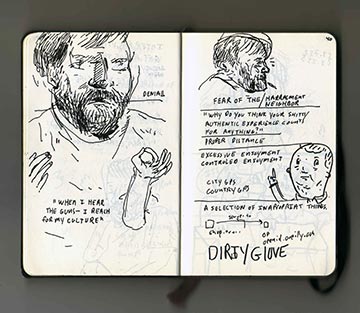 DENIAL
"WHEN I HEAR
THE GUNS- I REACH
FOR MY CULTURE"
FEAR OF THE / HARRASMENT
NEIGHBOR
"WHY DO YOU THINK YOUR SHITTY
AUTHENTIC EXPERIENCE COUNTS
FOR ANYTHING?"
PROPER DISTANCE
EXCESSIVE ENJOYMENT
CONTROLED ENJOYMENT?
CITY GPS
COUNTRY GPS
A SELECTION OF INAPROPRIAT THINGS.
DIRTY GLOVE